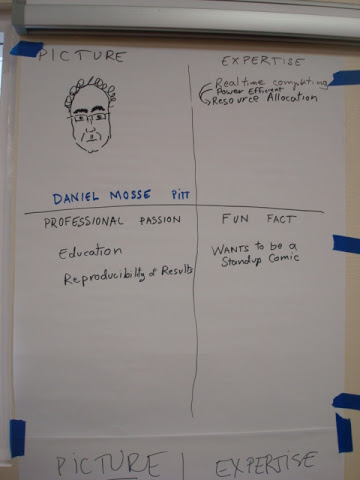 PICTURE
EXPERTISE
Realtime computing
Power Efficient
Resource Allocation
DANIEL MOSSE Pitt
PROFESSIONAL PASSION
Education
Reproducibility of Results
FUN FACT
WANTS to be a
Standup Comic
PICTURE
EXPERTISE